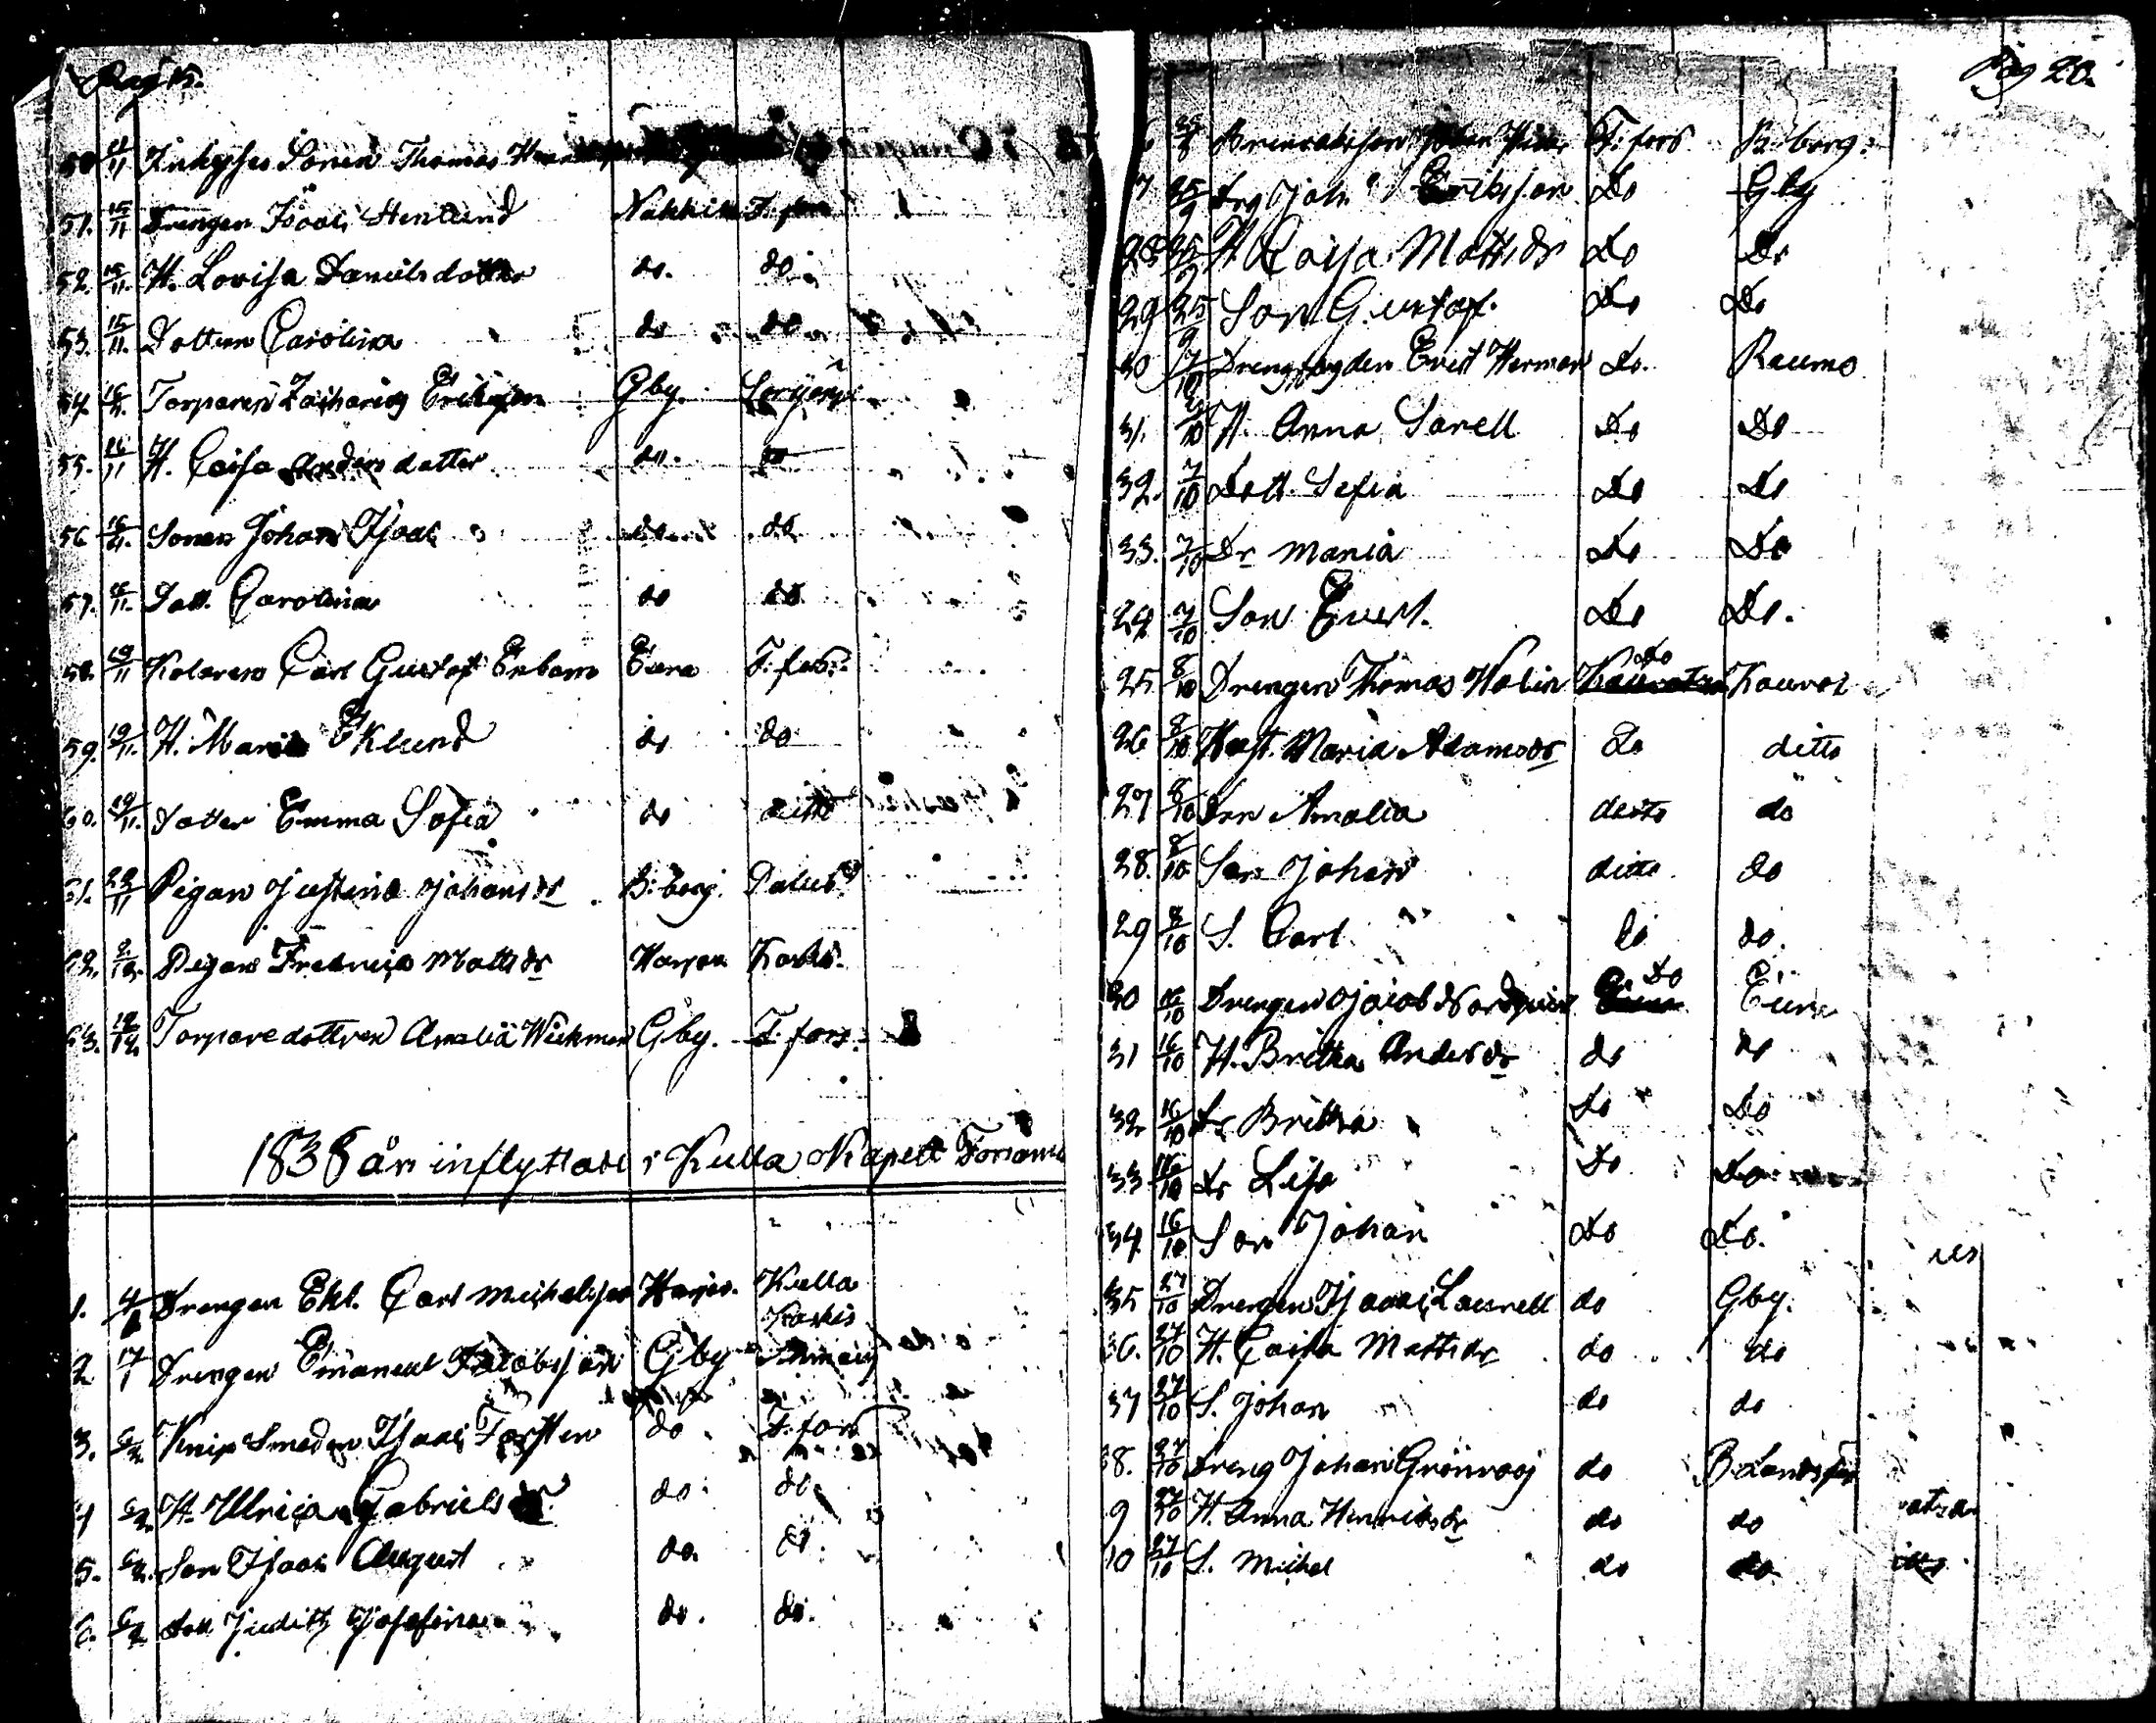 50 11/11 Inhyses Sonen Thomas
51. 15/11 Drengen Isaac Stenlund Nakkila F: fors
52. 15/11. H. Lovisa Danielsdotter do. do
53. 15/11. Dottren Carolina do do
54. 16/11. Torparen Zacharias Ericksson Gby.
55. 16/11 H. Caisa Andersdotter do. do
56 16/11. Sonen Johan Isaac do do
57. 16/11. Dott. Carolina do do
58. 19/11 Kolaren Carl Gustaf Enbom Eura F: fors.
59. 19/11. H. Maria Eklund do do
60. 19/11. Dotter Emma Sofia do ditto
61. 29/11 Pigan Justina Johansdr B: borg.
62. Pigan Fredrica Mattsdr Harjav. Karkis.
63. Torparedottren Amalia Wickman Gby. F. fors.
1838 års inflyttade i Kulla Kapell
1. Drengen Ekl. Carl Michelsson Harjav. Kulla
Karkis
2 17/1 Drengen Emanuel Jacobsson Gby
3. 6/2 Knip Smeden Isaac Forsten do F. fors
4 6/2. H. Ulrica Gabrielsdr do. do.
5. 6/2. Son Isaac August do. do.
6. 6/2 Dott Judith Josefina do. do.
Pag 20.
F: fors B: borg.
7 25/9 Drg Joh. Eriksson Do Gby
28 25/9 H. Caisa Mattsdr Do Do
29 25/9 Son Gustaf. Do Do
30 7/10 Evert Herman Do. Raumo
31. 7/10 H. Anna Sarell Do Do
32. 7/10 Dott. Sofia Do Do
33. 7/10 Dr Maria Do Do
24 7/10 Son Evert. Do Do.
25 8/10 Drengen Thomas Holin Do Kauvat
26 8/10 Hust. Maria Adamsdr Do ditto
27 8/10 Amalia ditto do
28. 8/10 Son Johan ditto do
29 8/10 S. Carl do do.
30 16/10 Drengen Jacob Nordqvist Do Eura
31 16/10 H. Britha Andersdr do do
32 16/10 Dr Britha Do Do
33 16/10 Dr Lisa Do Do
34. 16/10 Son Johan Do Do.
35 27/10 Drengen Isaac Laurell do Gby.
36. 27/10 H. Caisa Mattsdr do do
37 27/10 S. Johan do do
38. 27/10 Dreng Johan Grönroos do B Landsförs
9 27/10 H. Anna Henriksdr do do
10 27/10 S. Michel do do